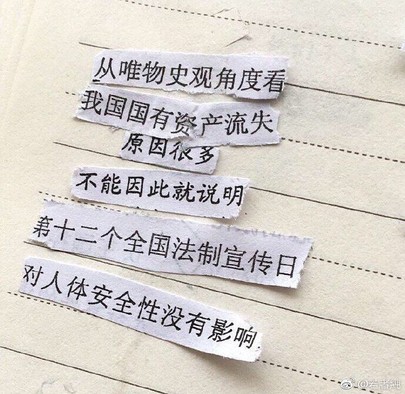 从唯物史观角度看
我国国有资产流失
原因很多
不能因此就说明
第十二个全国法制宣传日
对人体安全性没有影响